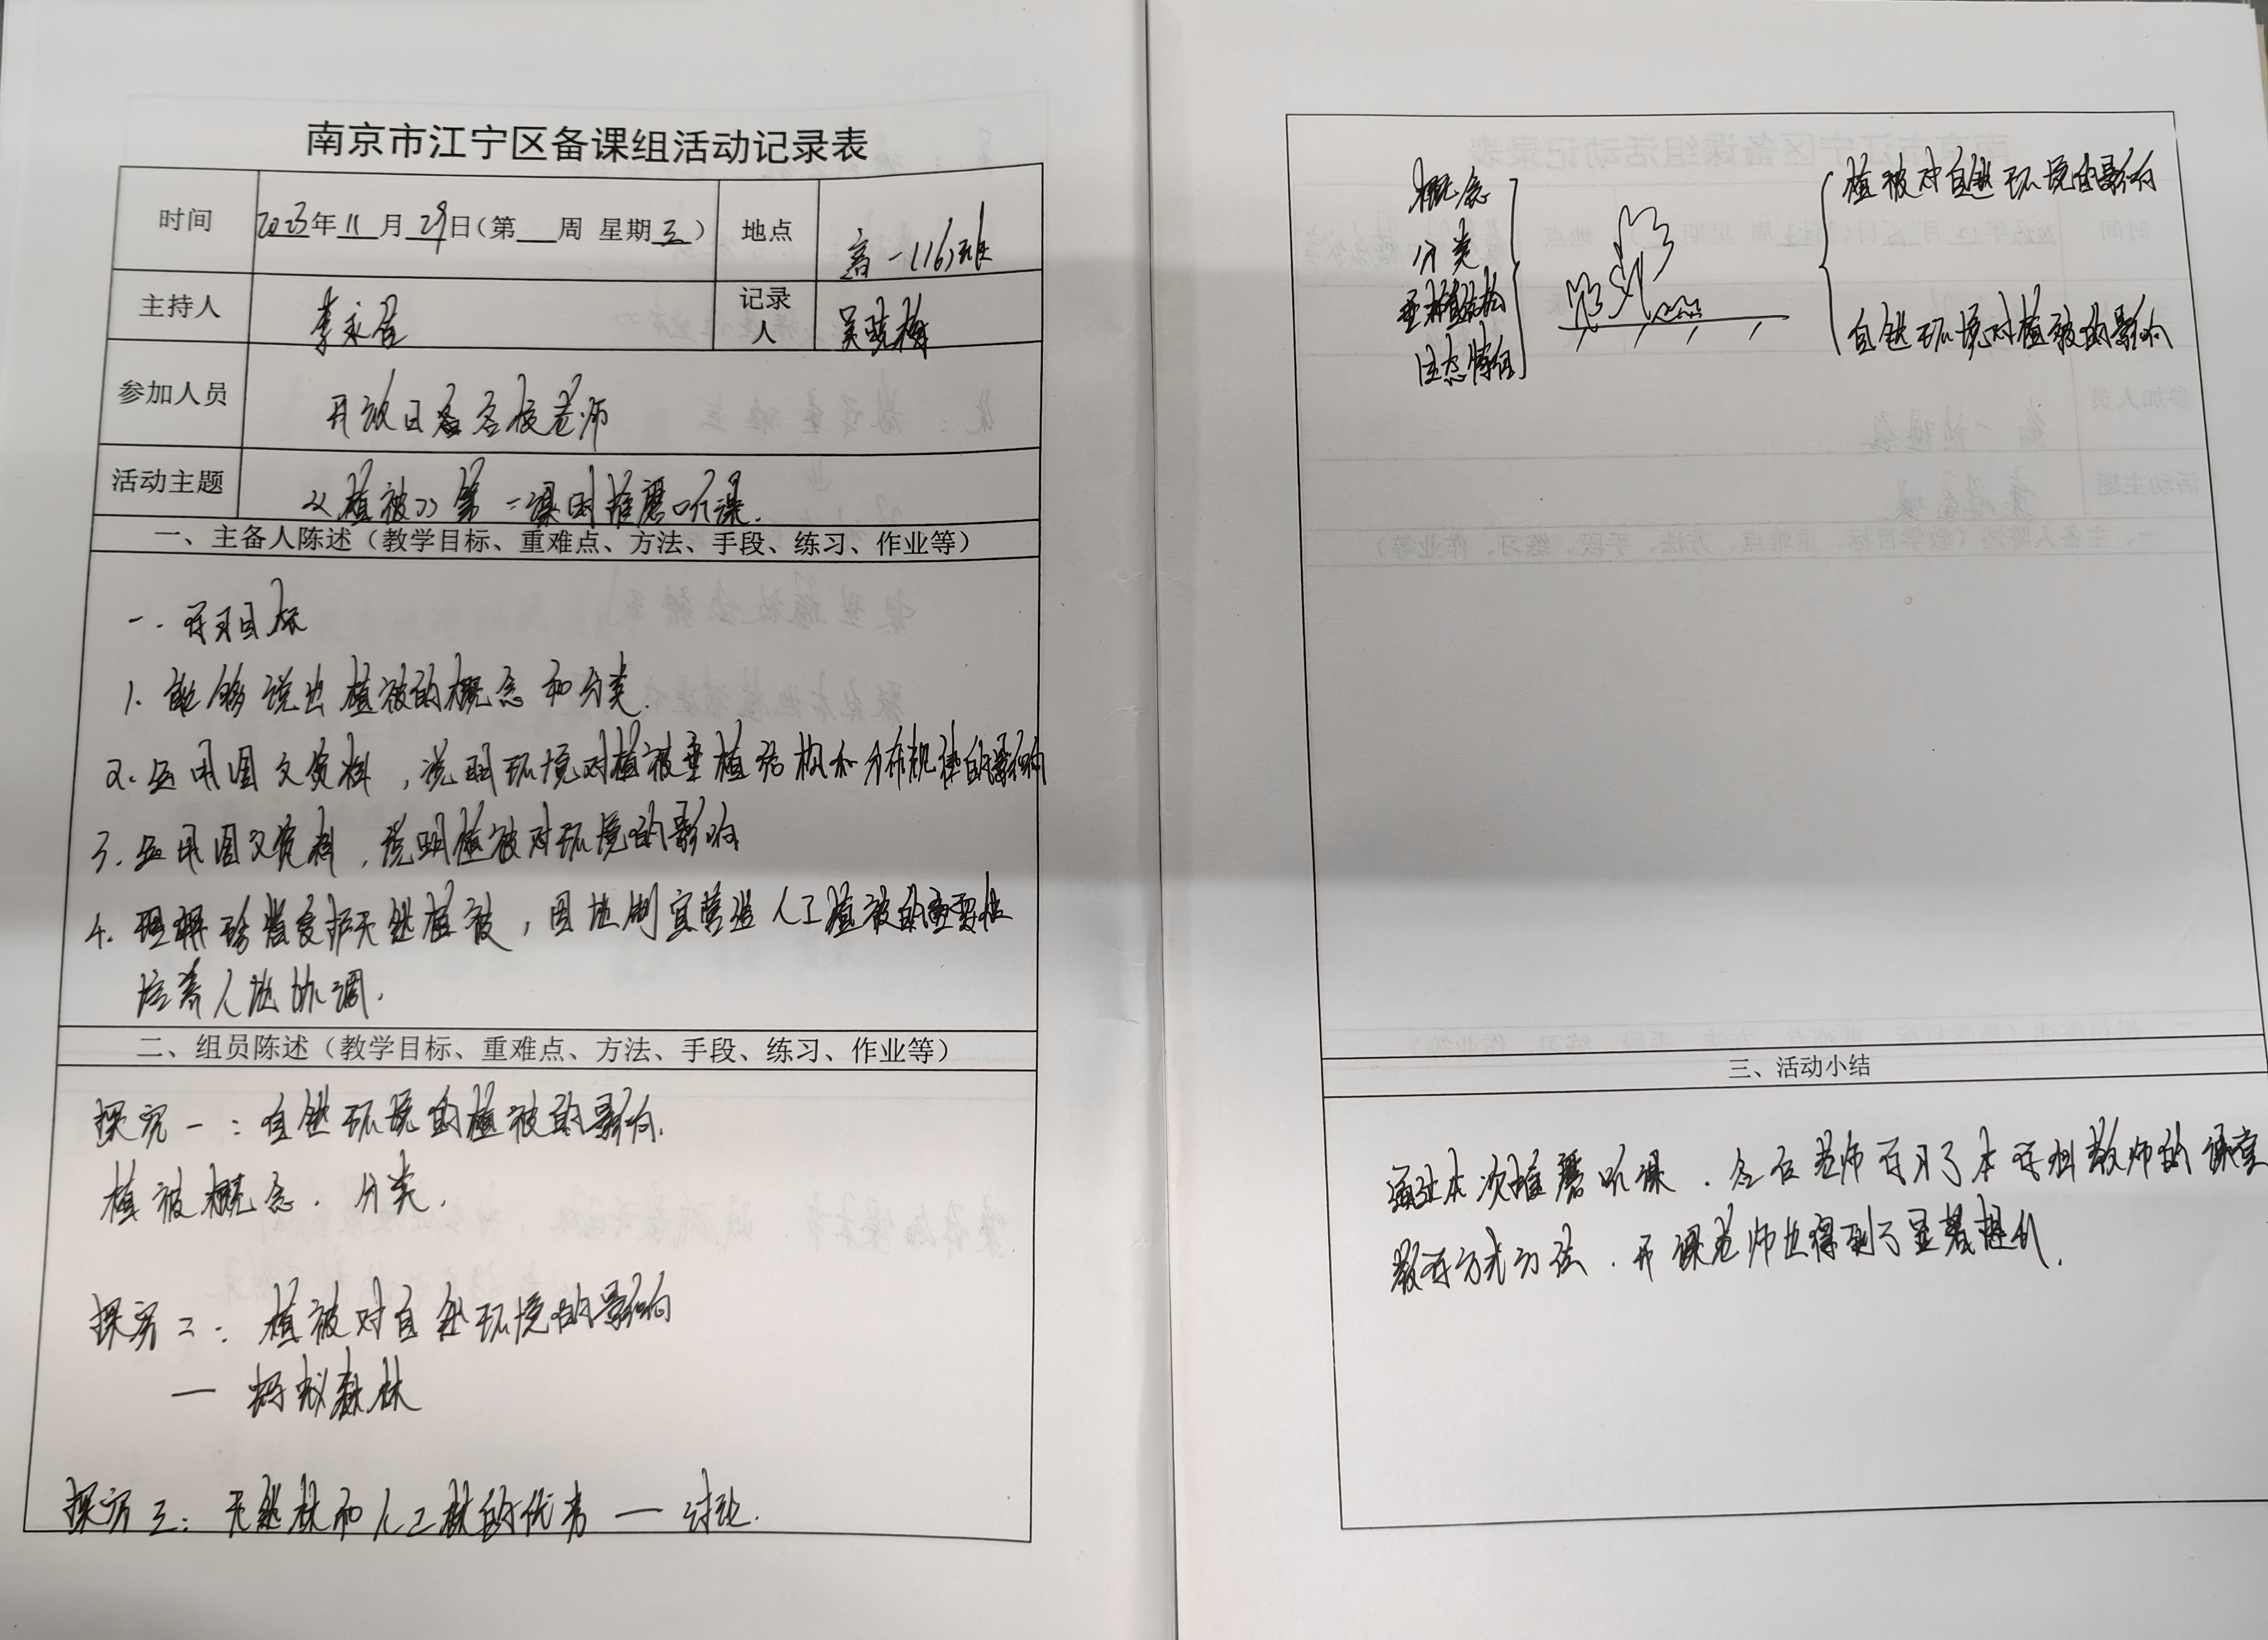 南京市江宁区备课组活动记录表
时间 2023年11月29日(第__周 星期三) 地点 高一(16)班
主持人 李永君 记录人 吴晓梅
参加人员 开放日各校老师
活动主题 《植被》第一课时推磨听课.
一、主备人陈述（教学目标、重难点、方法、手段、练习、作业等）
一. 学习目标
1. 能够说出植被的概念和分类.
2. 运用图文资料，说明环境对植被垂直结构和分布规律的影响
3. 运用图文资料，说明植被对环境的影响
4. 理解珍惜爱护天然植被，因地制宜营造人工植被的重要性
培养人地协调.
二、组员陈述（教学目标、重难点、方法、手段、练习、作业等）
探究一：自然环境的植被的影响.
植被概念. 分类.
探究二：植被对自然环境的影响
— 蚂蚁森林
探究三：天然林和人工林的优劣 — 讨论.
概念
分类
垂直结构
生态特征
植被对自然环境的影响
自然环境对植被的影响
三、活动小结
通过本次推磨听课. 各位老师学习了本学科教师的课堂
教学方式方法. 开课老师也得到了显著提升.